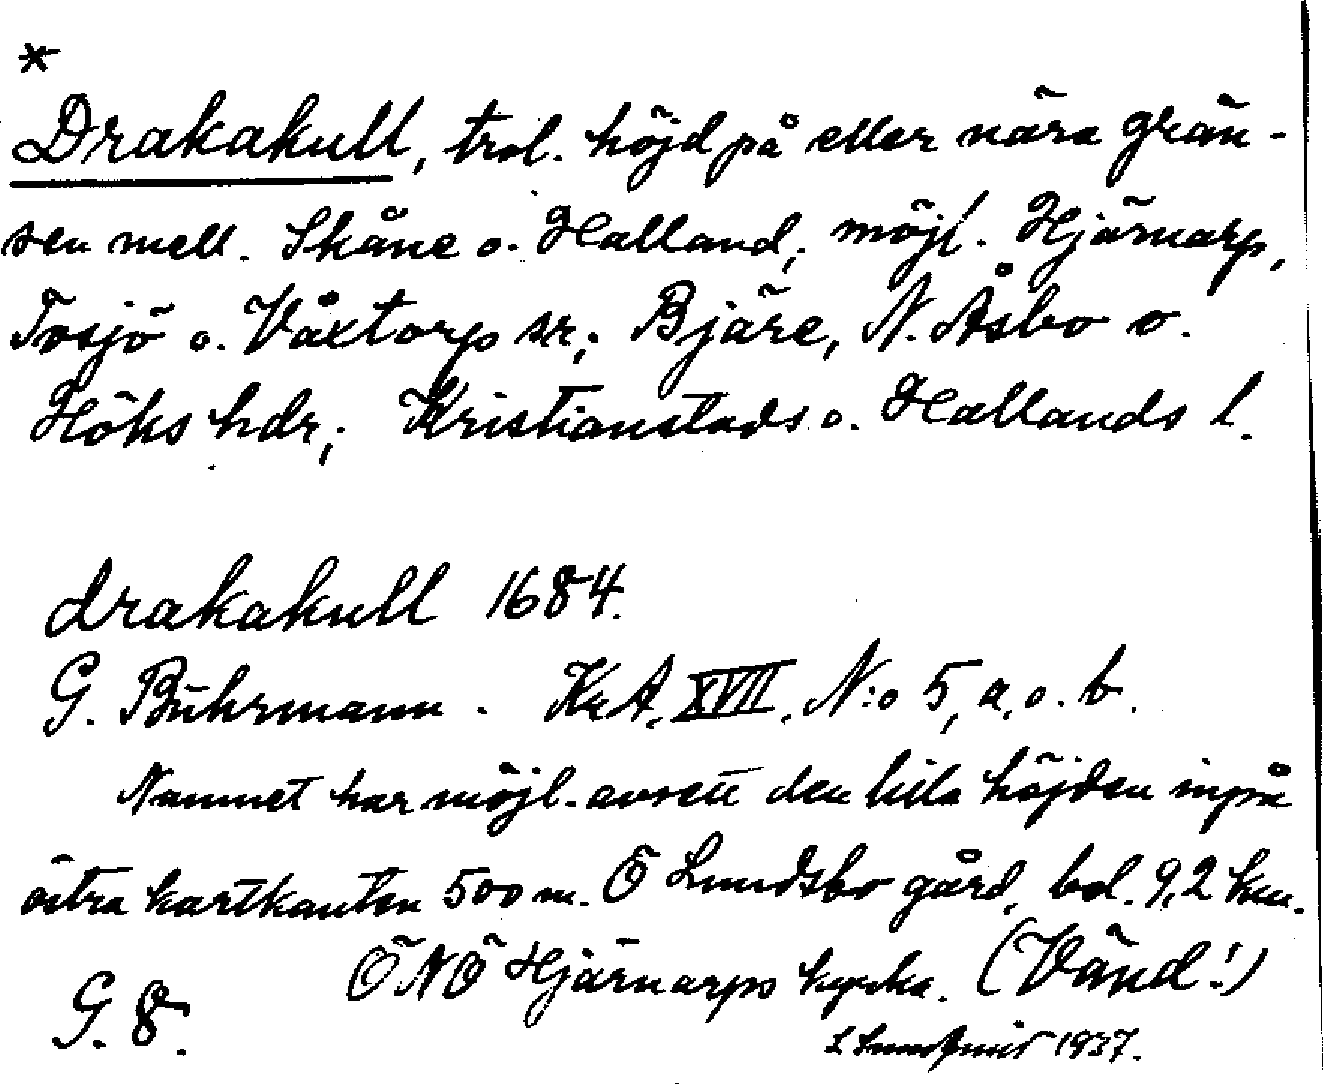 *
Drakakull, trol. höjd på eller nära grän-
sen mell. Skåne o. Halland; möjl. Hjärnarp,
Tosjö o. Våxtorp sr; Bjäre, N. Åsbo o.
Höks hdr; Kristianstads o. Hallands l.
drakakull 1684.
G. Bührmann. KrA. XVII. N:o 5, a. o. b.
Namnet har möjl. avsett den lilla höjden inpå
östra kartkanten 500 m. Ö Lundsbo gård, bel. 9,2 km.
ÖNÖ Hjärnarps kyrka. (Vänd!)
G. 8.
1937.